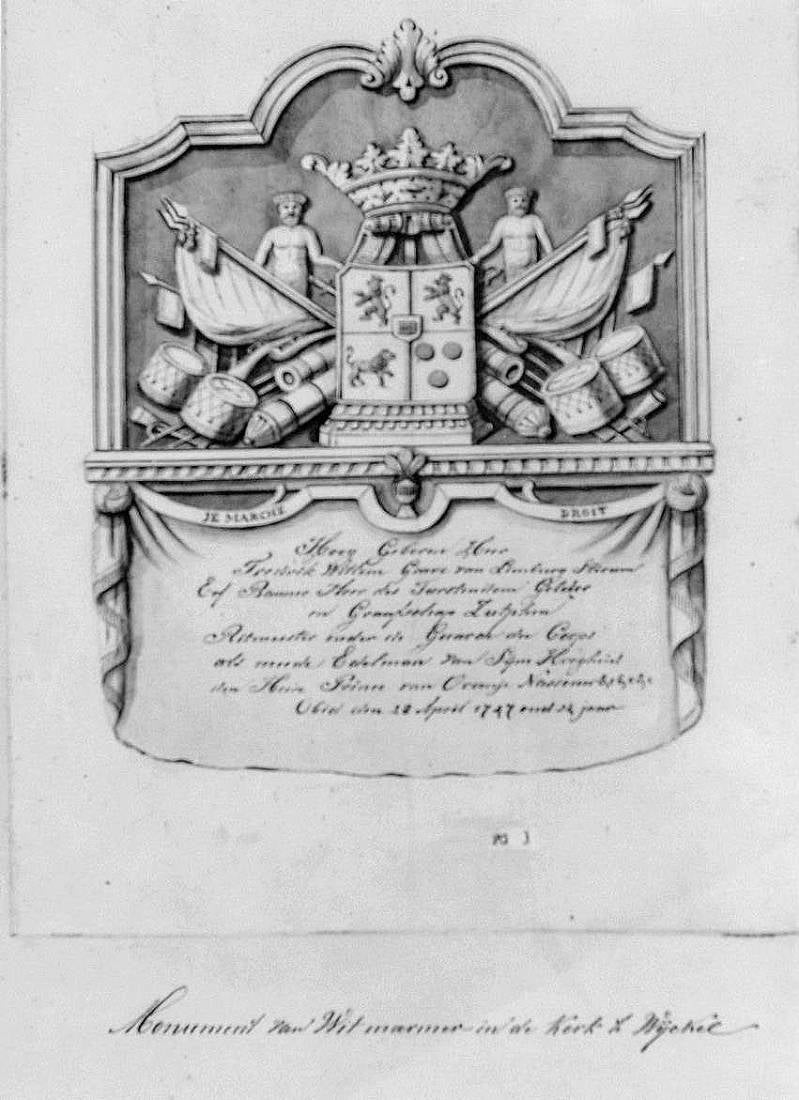 JE MARCHE DROIT
Hoog Geboren Heer
Fredrik Willem Grave van Limburg Stirum
Erf Banner Heer des Furstendom Gelder
en Graafschap Zutphen
Ritmeester onder de Guarde du Corps
als meede Edelman van Sijn Hoogheid
den Heere Prince van Oranje Nassau &c &c &c
Obiit den 12 April 1747 oud 24 jaar
PG )
Monument van Wit marmer in de Kerk te Wijckel